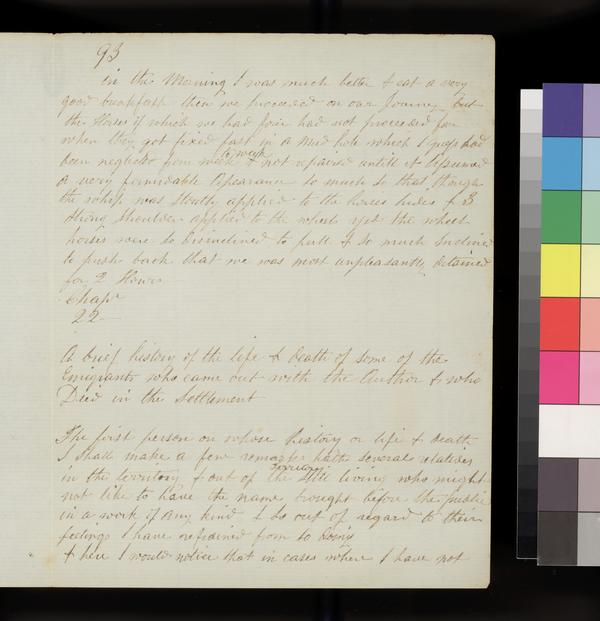 93
in the Morning I was much better & eat a very
good breakfast then we proceeded on our Journey but
the Horses of which we had four had not proceeded far
when they got fixed fast in a Mud hole which I guess had
been neglected from week to week & not repaired untill it assumed
a very formidable Apearance so much so that though
the whip was stoutly applied to the horses hides & 3
strong shoulders applied to the wheel yet the wheel
horses were so disinclined to pull & so much Inclined
to push back that we was most unpleasantly detained
for 2 Hours
Chapr
22
A brief history of the life & death of some of the
Emigrants who came out with the Author & who
Died in the Settlement
The first person on whose history or life & death
I shall make a few remarks hath several relatives
in the territory & out of the territory still living who might
not like to have the name brought before the public
in a work of any kind & so out of regard to their
feelings I have refrained from so doing
& here I would notice that in cases where I have not